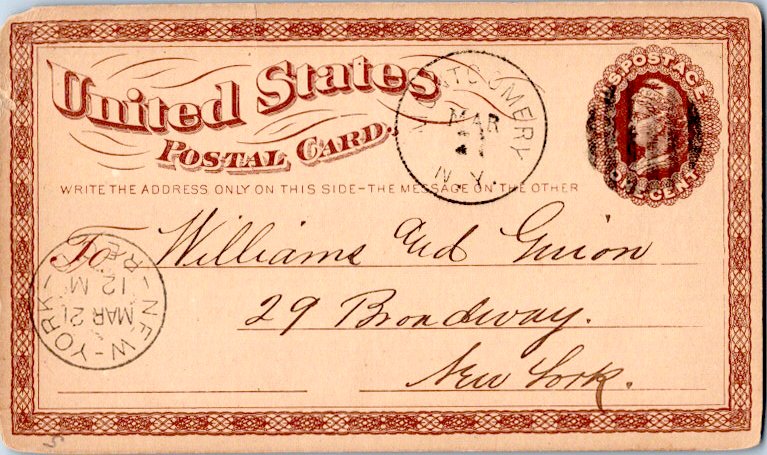 United States
POSTAL CARD.
WRITE THE ADDRESS ONLY ON THIS SIDE-THE MESSAGE ON THE OTHER
U.S. POSTAGE
ONE CENT
MONTGOMERY
MAR
N.Y.
To Williams and Guion
29 Broadway.
New York.
NEW-YORK-
MAR 21
12 M